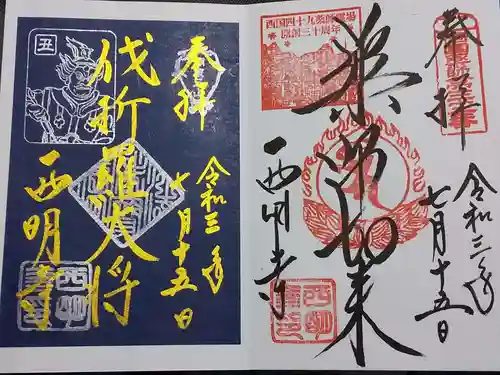 奉拝
令和三年
七月十五日
伐折羅大将
西明寺
丑
奉拝
令和三年
七月十五日
薬師如来
西明寺
西国四十九薬師霊場
開創三十周年